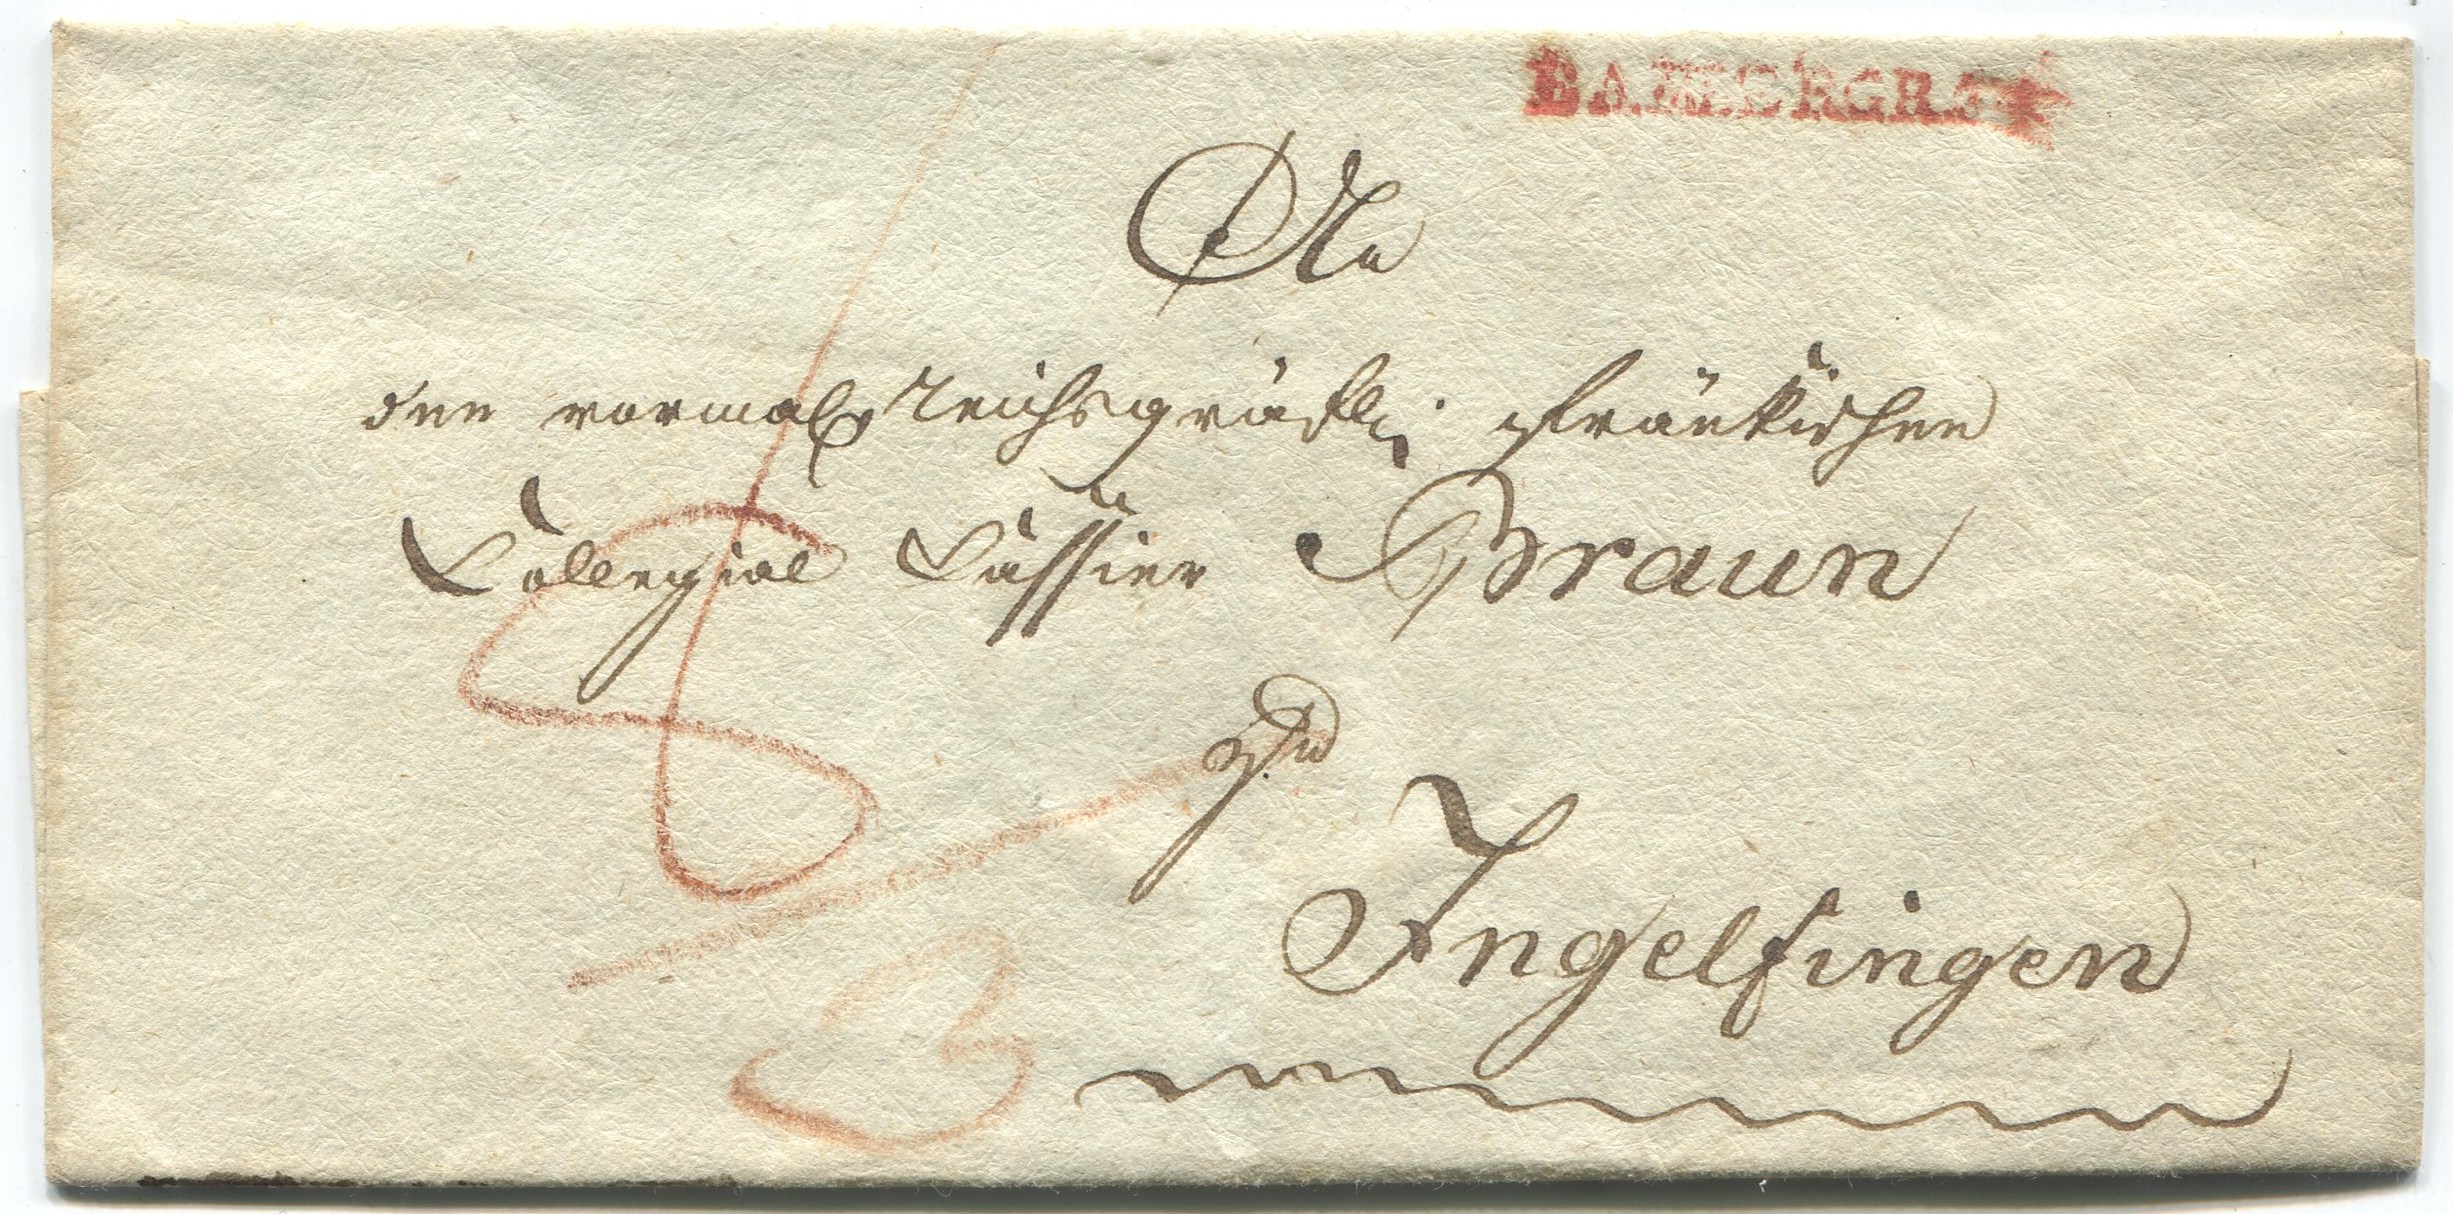 BAMBERG R.4
An
den vormals Reichsgräfl. Fränkischen
Collegial Cassier Braun
zu
Ingelfingen
8
3